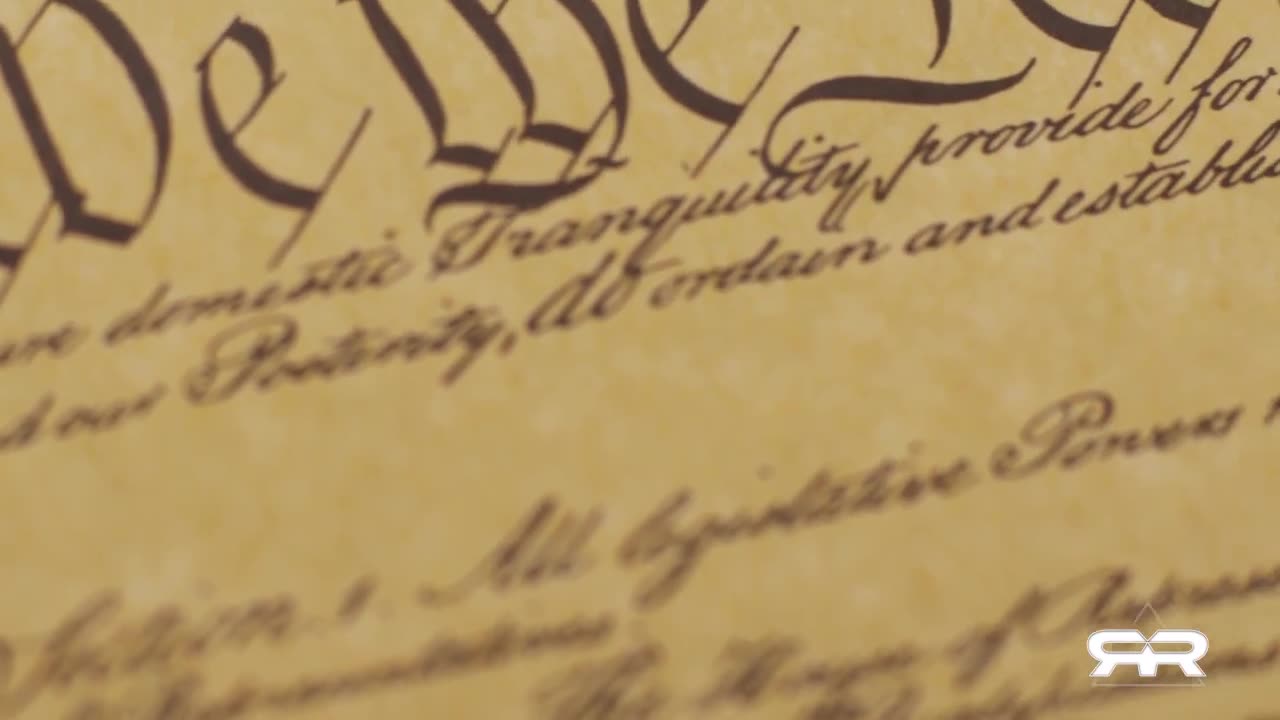 We the Pe
ure domestic Tranquility, provide for
d our Posterity, do ordain and establis
Section. 1. All legislative Powers
Representatives.
The House of Represen
RR